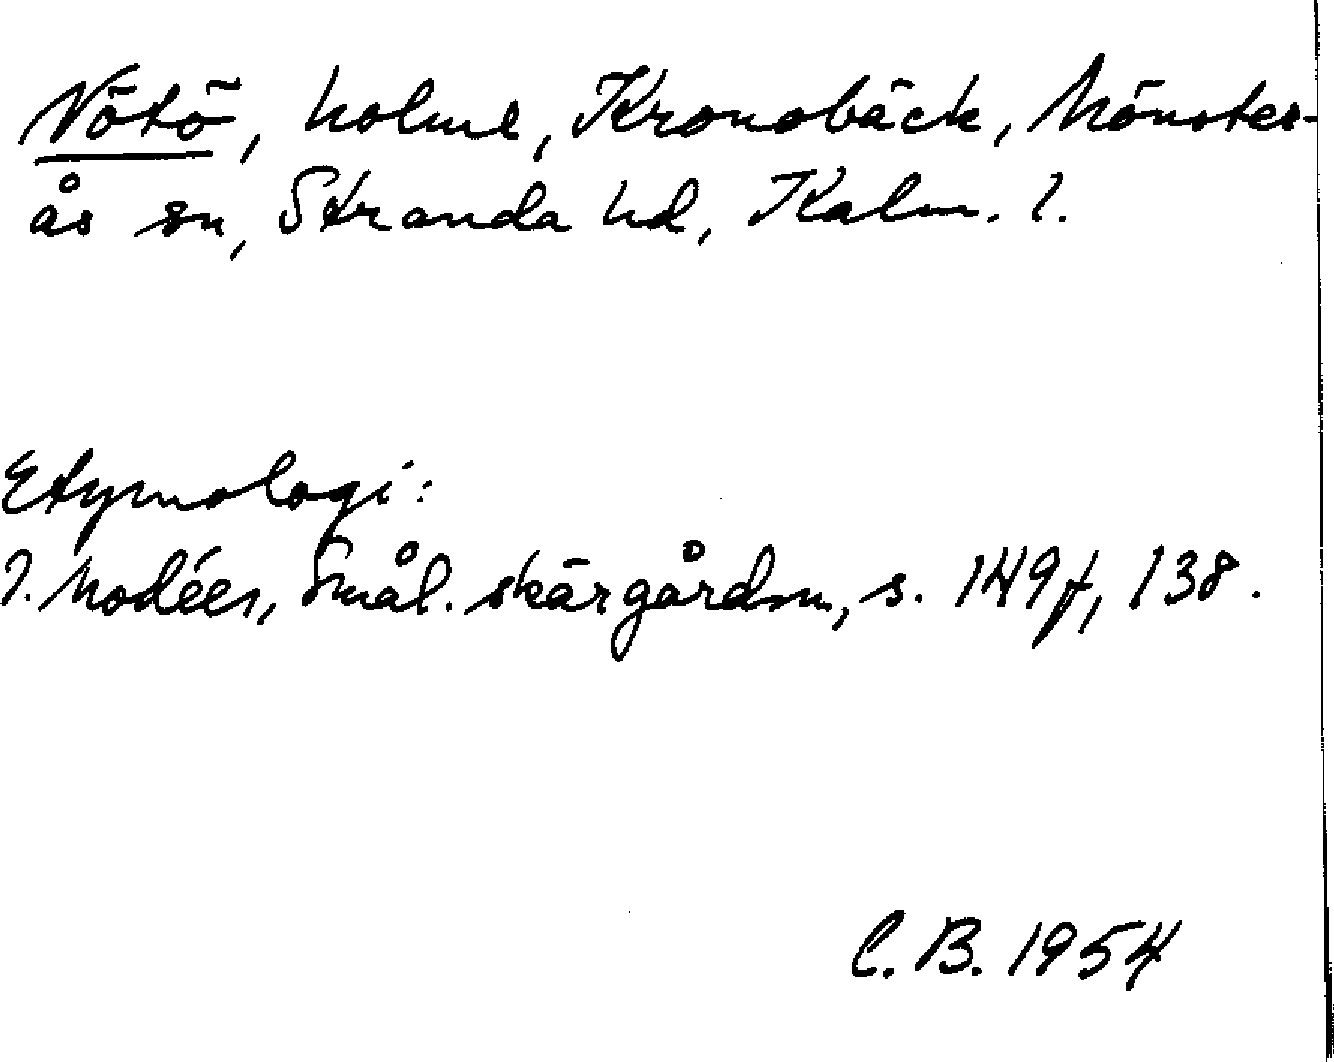 Nötö, holme, Kronobäck, Mönster-
ås sn, Stranda hd, Kalm. l.
Etymologi:
I. Modéer, Smål. skärgårdsn, s. 149f, 138.
C. B. 1954